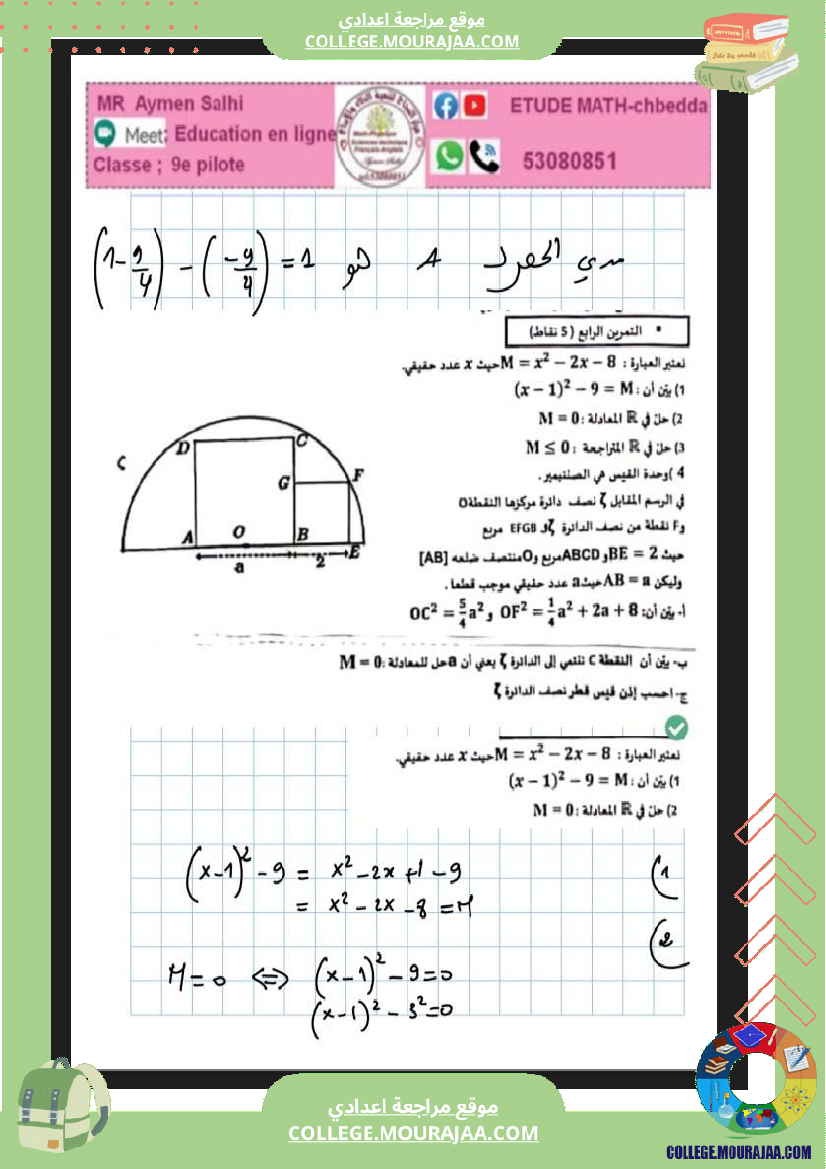 موقع مراجعة اعدادي
COLLEGE.MOURAJAA.COM
MR Aymen Salhi
Meet: Education en ligne
Classe ; 9e pilote
ETUDE MATH-chbedda
53080851
مدي الحصر لـ A هو (1-9/4) - (-9/4) = 1
▪ التمرين الرابع (5 نقاط)
نعتبر العبارة : M = x² − 2x − 8 حيث x عدد حقيقي.
1) بيّن أن : (x − 1)² − 9 = M
2) حلّ في ℝ المعادلة : M = 0
3) حلّ في ℝ المتراجحة : M ≤ 0
4) وحدة القيس هي الصنتيمتر.
في الرسم المقابل ζ نصف دائرة مركزها النقطة O
و F نقطة من نصف الدائرة ζ و EFGB مربع
حيث BE = 2 و ABCD مربع و O منتصف ضلعه [AB]
وليكن AB = a حيث a عدد حقيقي موجب قطعا.
أ- بيّن أن: OF² = 1/4 a² + 2a + 8 و OC² = 5/4 a²
D C
G F
A O B E
a 2
ب- بيّن أن النقطة C تنتمي إلى الدائرة ζ يعني أن a حل للمعادلة : M = 0
ج- احسب إذن قيس قطر نصف الدائرة ζ
نعتبر العبارة : M = x² − 2x − 8 حيث x عدد حقيقي.
1) بيّن أن : (x − 1)² − 9 = M
2) حلّ في ℝ المعادلة : M = 0
(x-1)² - 9 = x² - 2x + 1 - 9 (1
= x² - 2x - 8 = M
(2
M = 0 ⇔ (x-1)² - 9 = 0
(x-1)² - 3² = 0
موقع مراجعة اعدادي
COLLEGE.MOURAJAA.COM
COLLEGE.MOURAJAA.COM